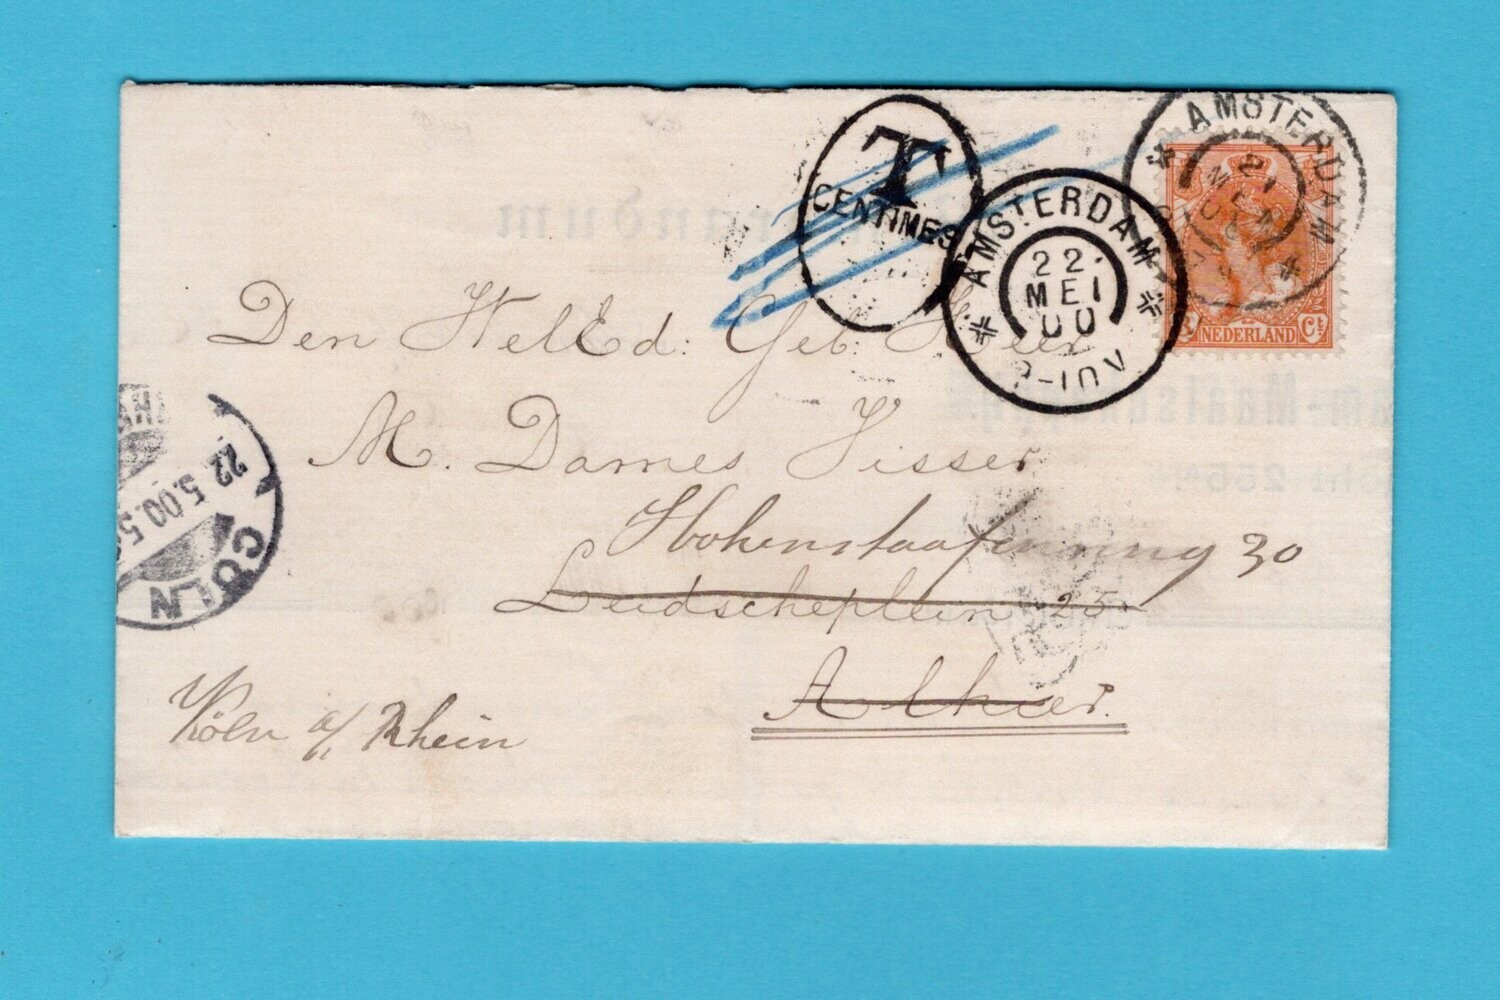 T
CENTIMES
AMSTERDAM
22
MEI
00
AMSTERDAM
21
MEI
NEDERLAND
Ct
Den WelEd: Geb. Heer
M. Dames Visser
Hohenstaafenring 30
Leidscheplein 25
Alhier.
Köln a/ Rhein
22.5.00.5
CÖLN